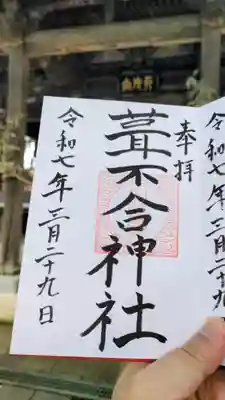 奉拝
葺不合神社
令和七年三月二十九日
令和七年三月二十九